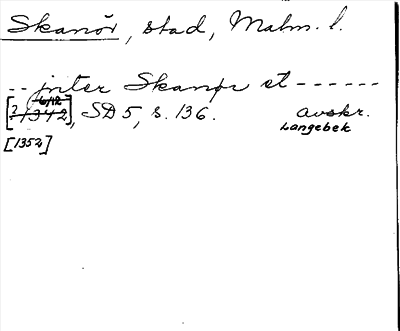 Skanör, stad, Malm. l.
-- inter Skanør et ------
[? 1342 6/12], SD 5, s. 136. avskr.
Langebek
[1352]